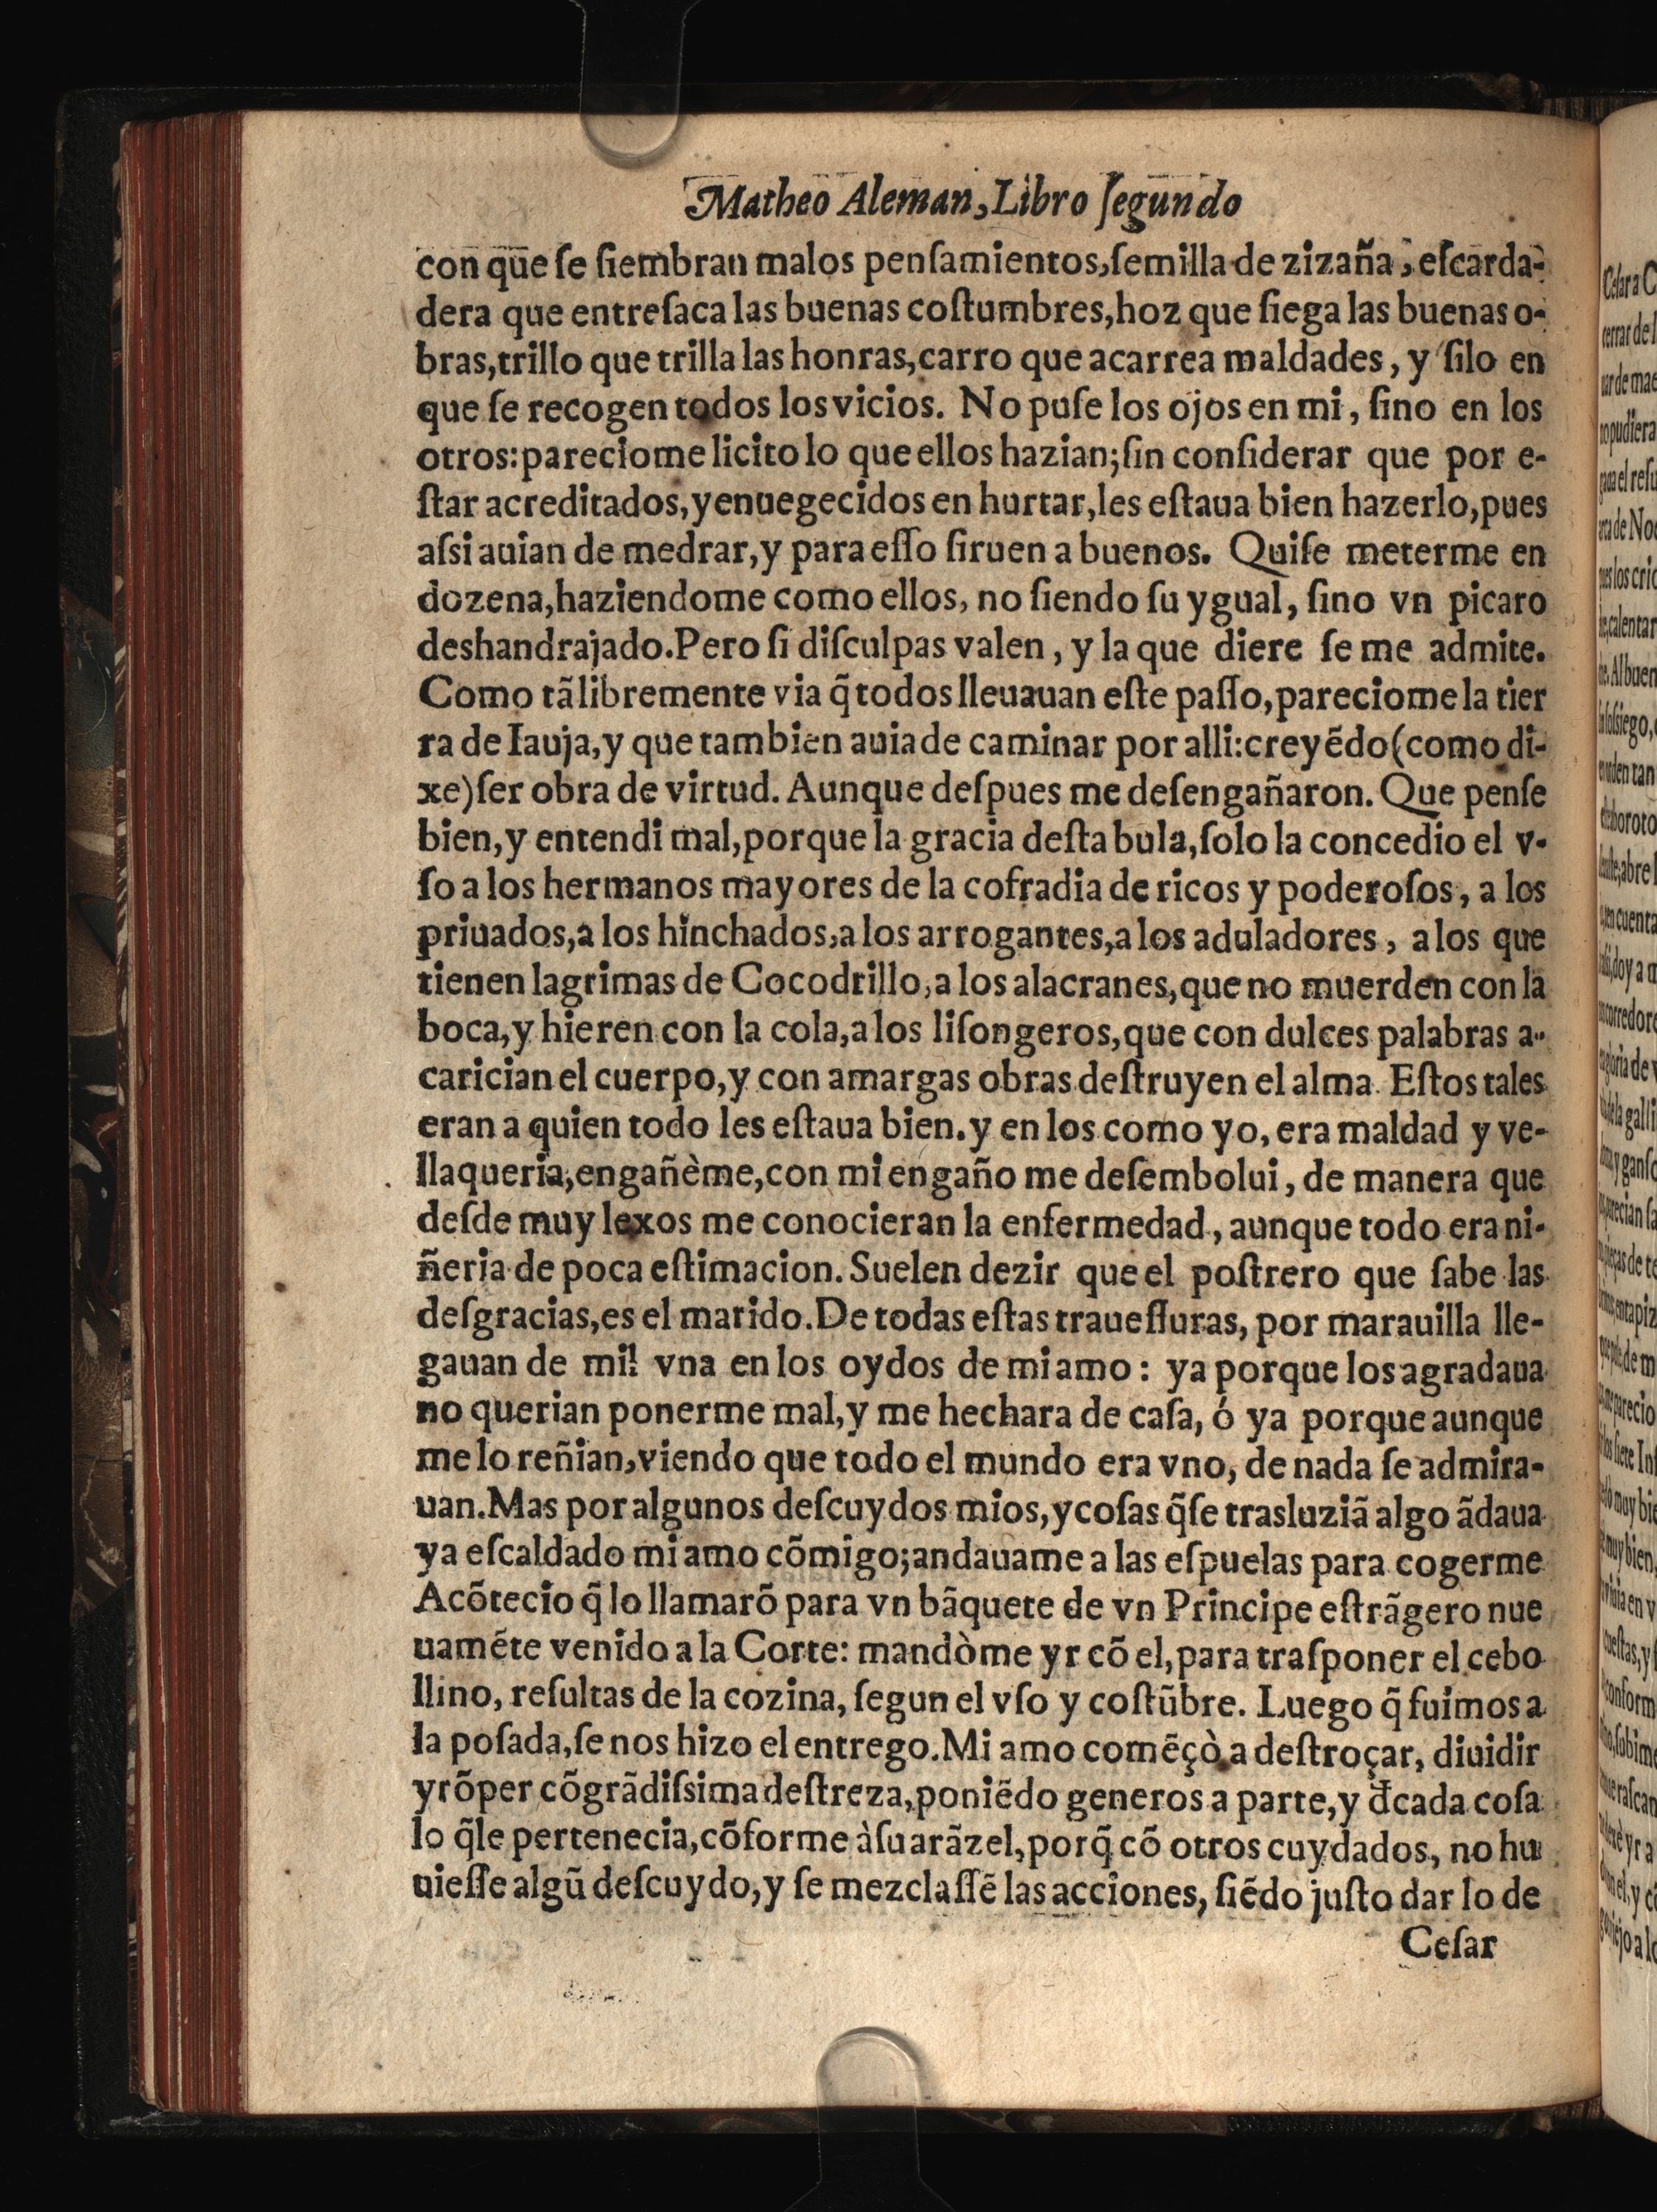 Matheo Aleman, Libro ſegundo
con que ſe ſiembran malos penſamientos, ſemilla de zizaña, eſcarda-
dera que entreſaca las buenas coſtumbres, hoz que ſiega las buenas o-
bras, trillo que trilla las honras, carro que acarrea maldades, y ſilo en
que ſe recogen todos los vicios. No puſe los ojos en mi, ſino en los
otros: pareciome licito lo que ellos hazian; ſin conſiderar que por e-
ſtar acreditados, y enuegecidos en hurtar, les eſtaua bien hazerlo, pues
aſsi auian de medrar, y para eſſo ſiruen a buenos. Quiſe meterme en
dozena, haziendome como ellos, no ſiendo ſu ygual, ſino vn picaro
deshandrajado. Pero ſi diſculpas valen, y la que diere ſe me admite.
Como tã libremente via q̃ todos lleuauan eſte paſſo, pareciome la tier
ra de Iauja, y que tambien auia de caminar por alli: creyẽdo (como di-
xe) ſer obra de virtud. Aunque deſpues me deſengañaron. Que penſe
bien, y entendi mal, porque la gracia deſta bula, ſolo la concedio el v-
ſo a los hermanos mayores de la cofradia de ricos y poderoſos, a los
priuados, a los hinchados, a los arrogantes, a los aduladores, a los que
tienen lagrimas de Cocodrillo, a los alacranes, que no muerden con la
boca, y hieren con la cola, a los liſongeros, que con dulces palabras a-
carician el cuerpo, y con amargas obras deſtruyen el alma. Eſtos tales
eran a quien todo les eſtaua bien. y en los como yo, era maldad y ve-
llaqueria, engañème, con mi engaño me deſembolui, de manera que
deſde muy lexos me conocieran la enfermedad, aunque todo era ni-
ñeria de poca eſtimacion. Suelen dezir que el poſtrero que ſabe las
deſgracias, es el marido. De todas eſtas traueſſuras, por marauilla lle-
gauan de mil vna en los oydos de mi amo: ya porque los agradaua
no querian ponerme mal, y me hechara de caſa, ó ya porque aunque
me lo reñian, viendo que todo el mundo era vno, de nada ſe admira-
uan. Mas por algunos deſcuydos mios, y coſas q̃ ſe trasluziã algo ãdaua
ya eſcaldado mi amo cõmigo; andauame a las eſpuelas para cogerme
Acõtecio q̃ lo llamarõ para vn bãquete de vn Principe eſtrãgero nue
uamẽte venido a la Corte: mandòme yr cõ el, para traſponer el cebo
llino, reſultas de la cozina, ſegun el vſo y coſtũbre. Luego q̃ fuimos a
la poſada, ſe nos hizo el entrego. Mi amo comẽçò a deſtroçar, diuidir
y rõper cõ grãdiſsima deſtreza, poniẽdo generos a parte, y đ cada coſa
lo q̃ le pertenecia, cõforme à ſu arãzel, porq̃ cõ otros cuydados, no hu
uieſſe algũ deſcuydo, y ſe mezclaſſẽ las acciones, ſiẽdo juſto dar lo de
Ceſar